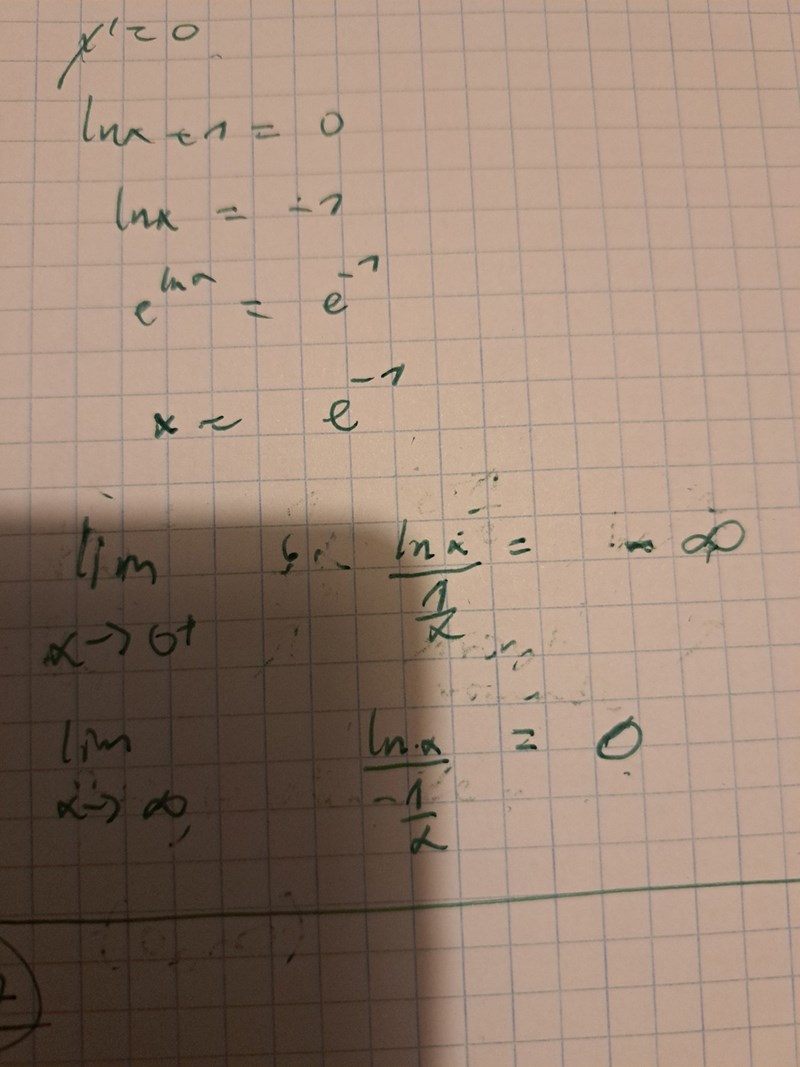 y' = 0
ln x + 1 = 0
ln x = -1
e^{ln x} = e^{-1}
x = e^{-1}
lim x → 0+ \frac{ln x}{\frac{1}{x}} = - ∞
lim x → ∞ \frac{ln x}{-\frac{1}{x}} = 0